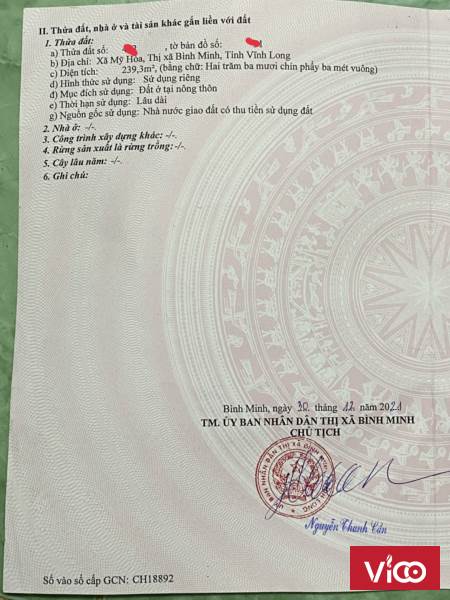 II. Thửa đất, nhà ở và tài sản khác gắn liền với đất
1. Thửa đất:
a) Thửa đất số: , tờ bản đồ số:
b) Địa chỉ: Xã Mỹ Hòa, Thị xã Bình Minh, Tỉnh Vĩnh Long
c) Diện tích: 239,3m², (bằng chữ: Hai trăm ba mươi chín phẩy ba mét vuông)
d) Hình thức sử dụng: Sử dụng riêng
đ) Mục đích sử dụng: Đất ở tại nông thôn
e) Thời hạn sử dụng: Lâu dài
g) Nguồn gốc sử dụng: Nhà nước giao đất có thu tiền sử dụng đất
2. Nhà ở: -/-.
3. Công trình xây dựng khác: -/-.
4. Rừng sản xuất là rừng trồng: -/-.
5. Cây lâu năm: -/-.
6. Ghi chú:
Bình Minh, ngày 30 tháng 12 năm 2021
TM. ỦY BAN NHÂN DÂN THỊ XÃ BÌNH MINH
CHỦ TỊCH
Nguyễn Thanh Cần
Số vào sổ cấp GCN: CH18892
Vicoo